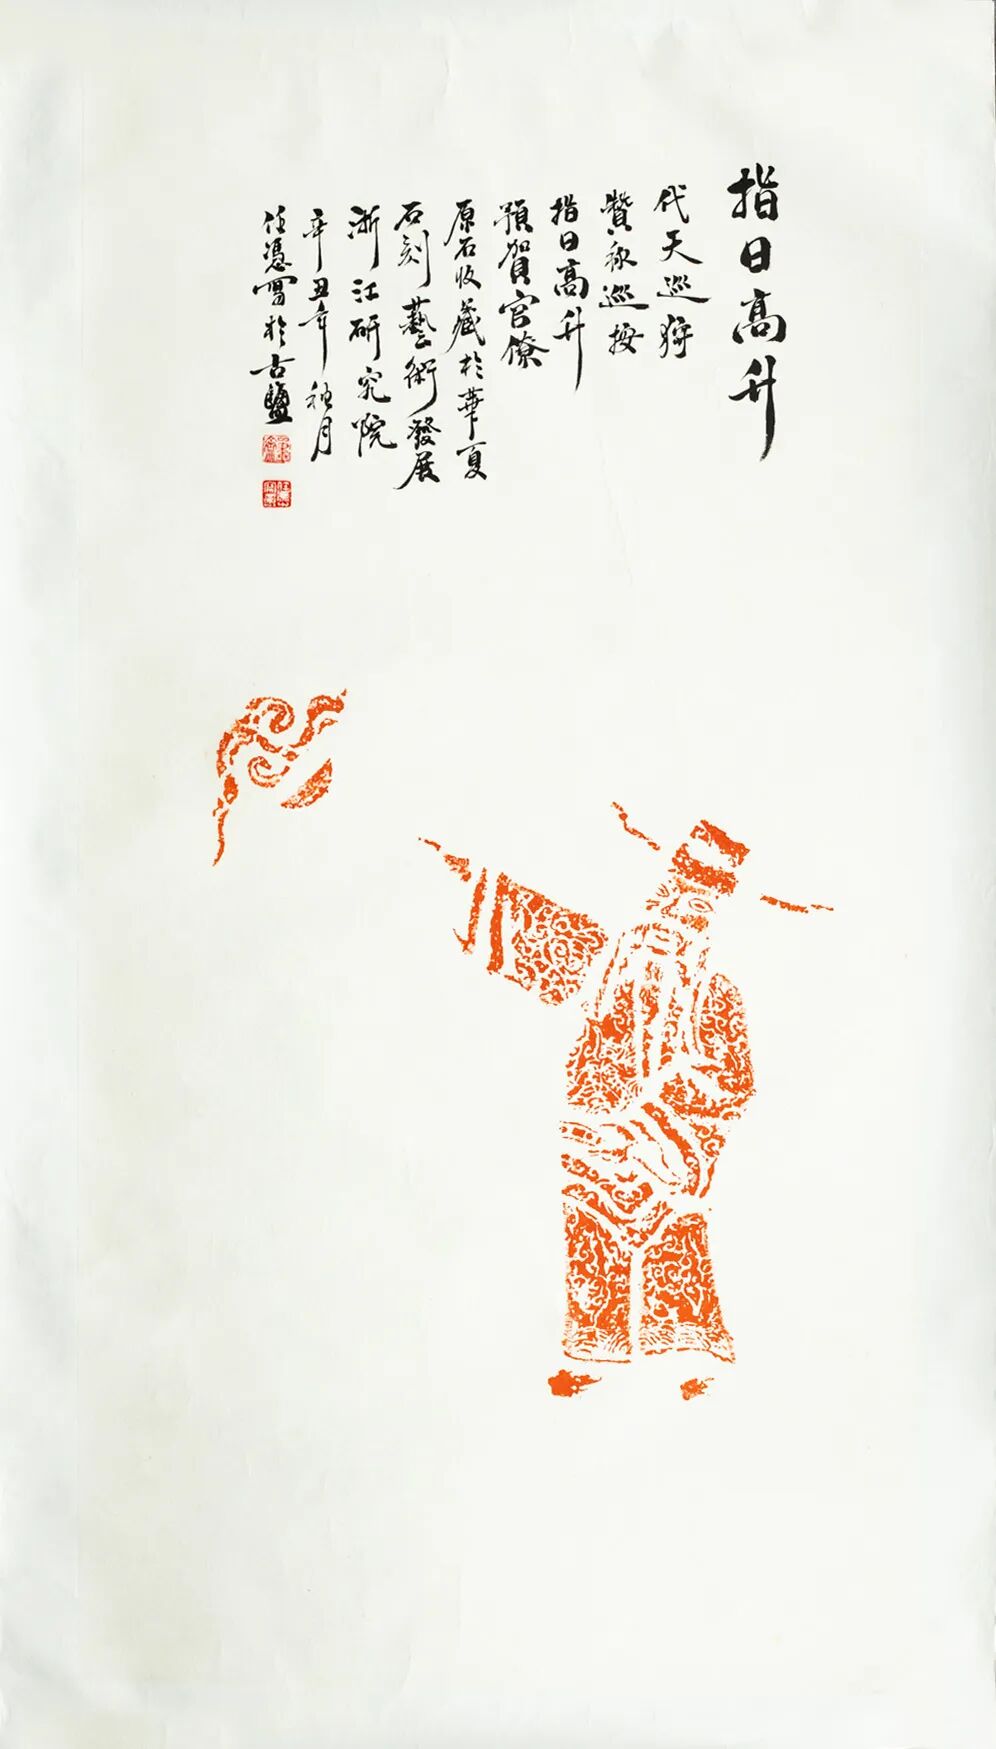 指日高升
代天巡狩
贊称巡按
指日高升
預賀官僚
原石收藏於華夏
石刻藝術發展
浙江研究院
辛丑年 月
任憑寫於古鹽